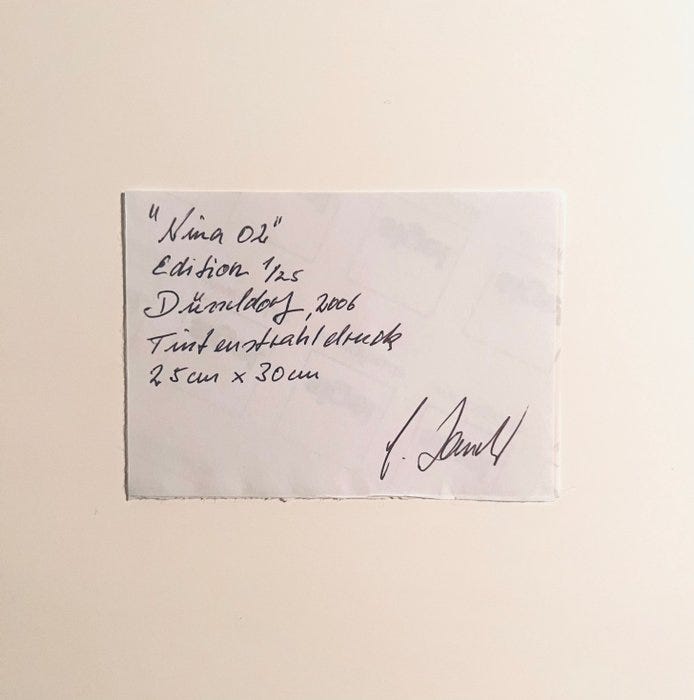 "Nina 02"
Edition 1/25
Düsseldorf, 2006
Tintenstrahldruck
25cm x 30cm